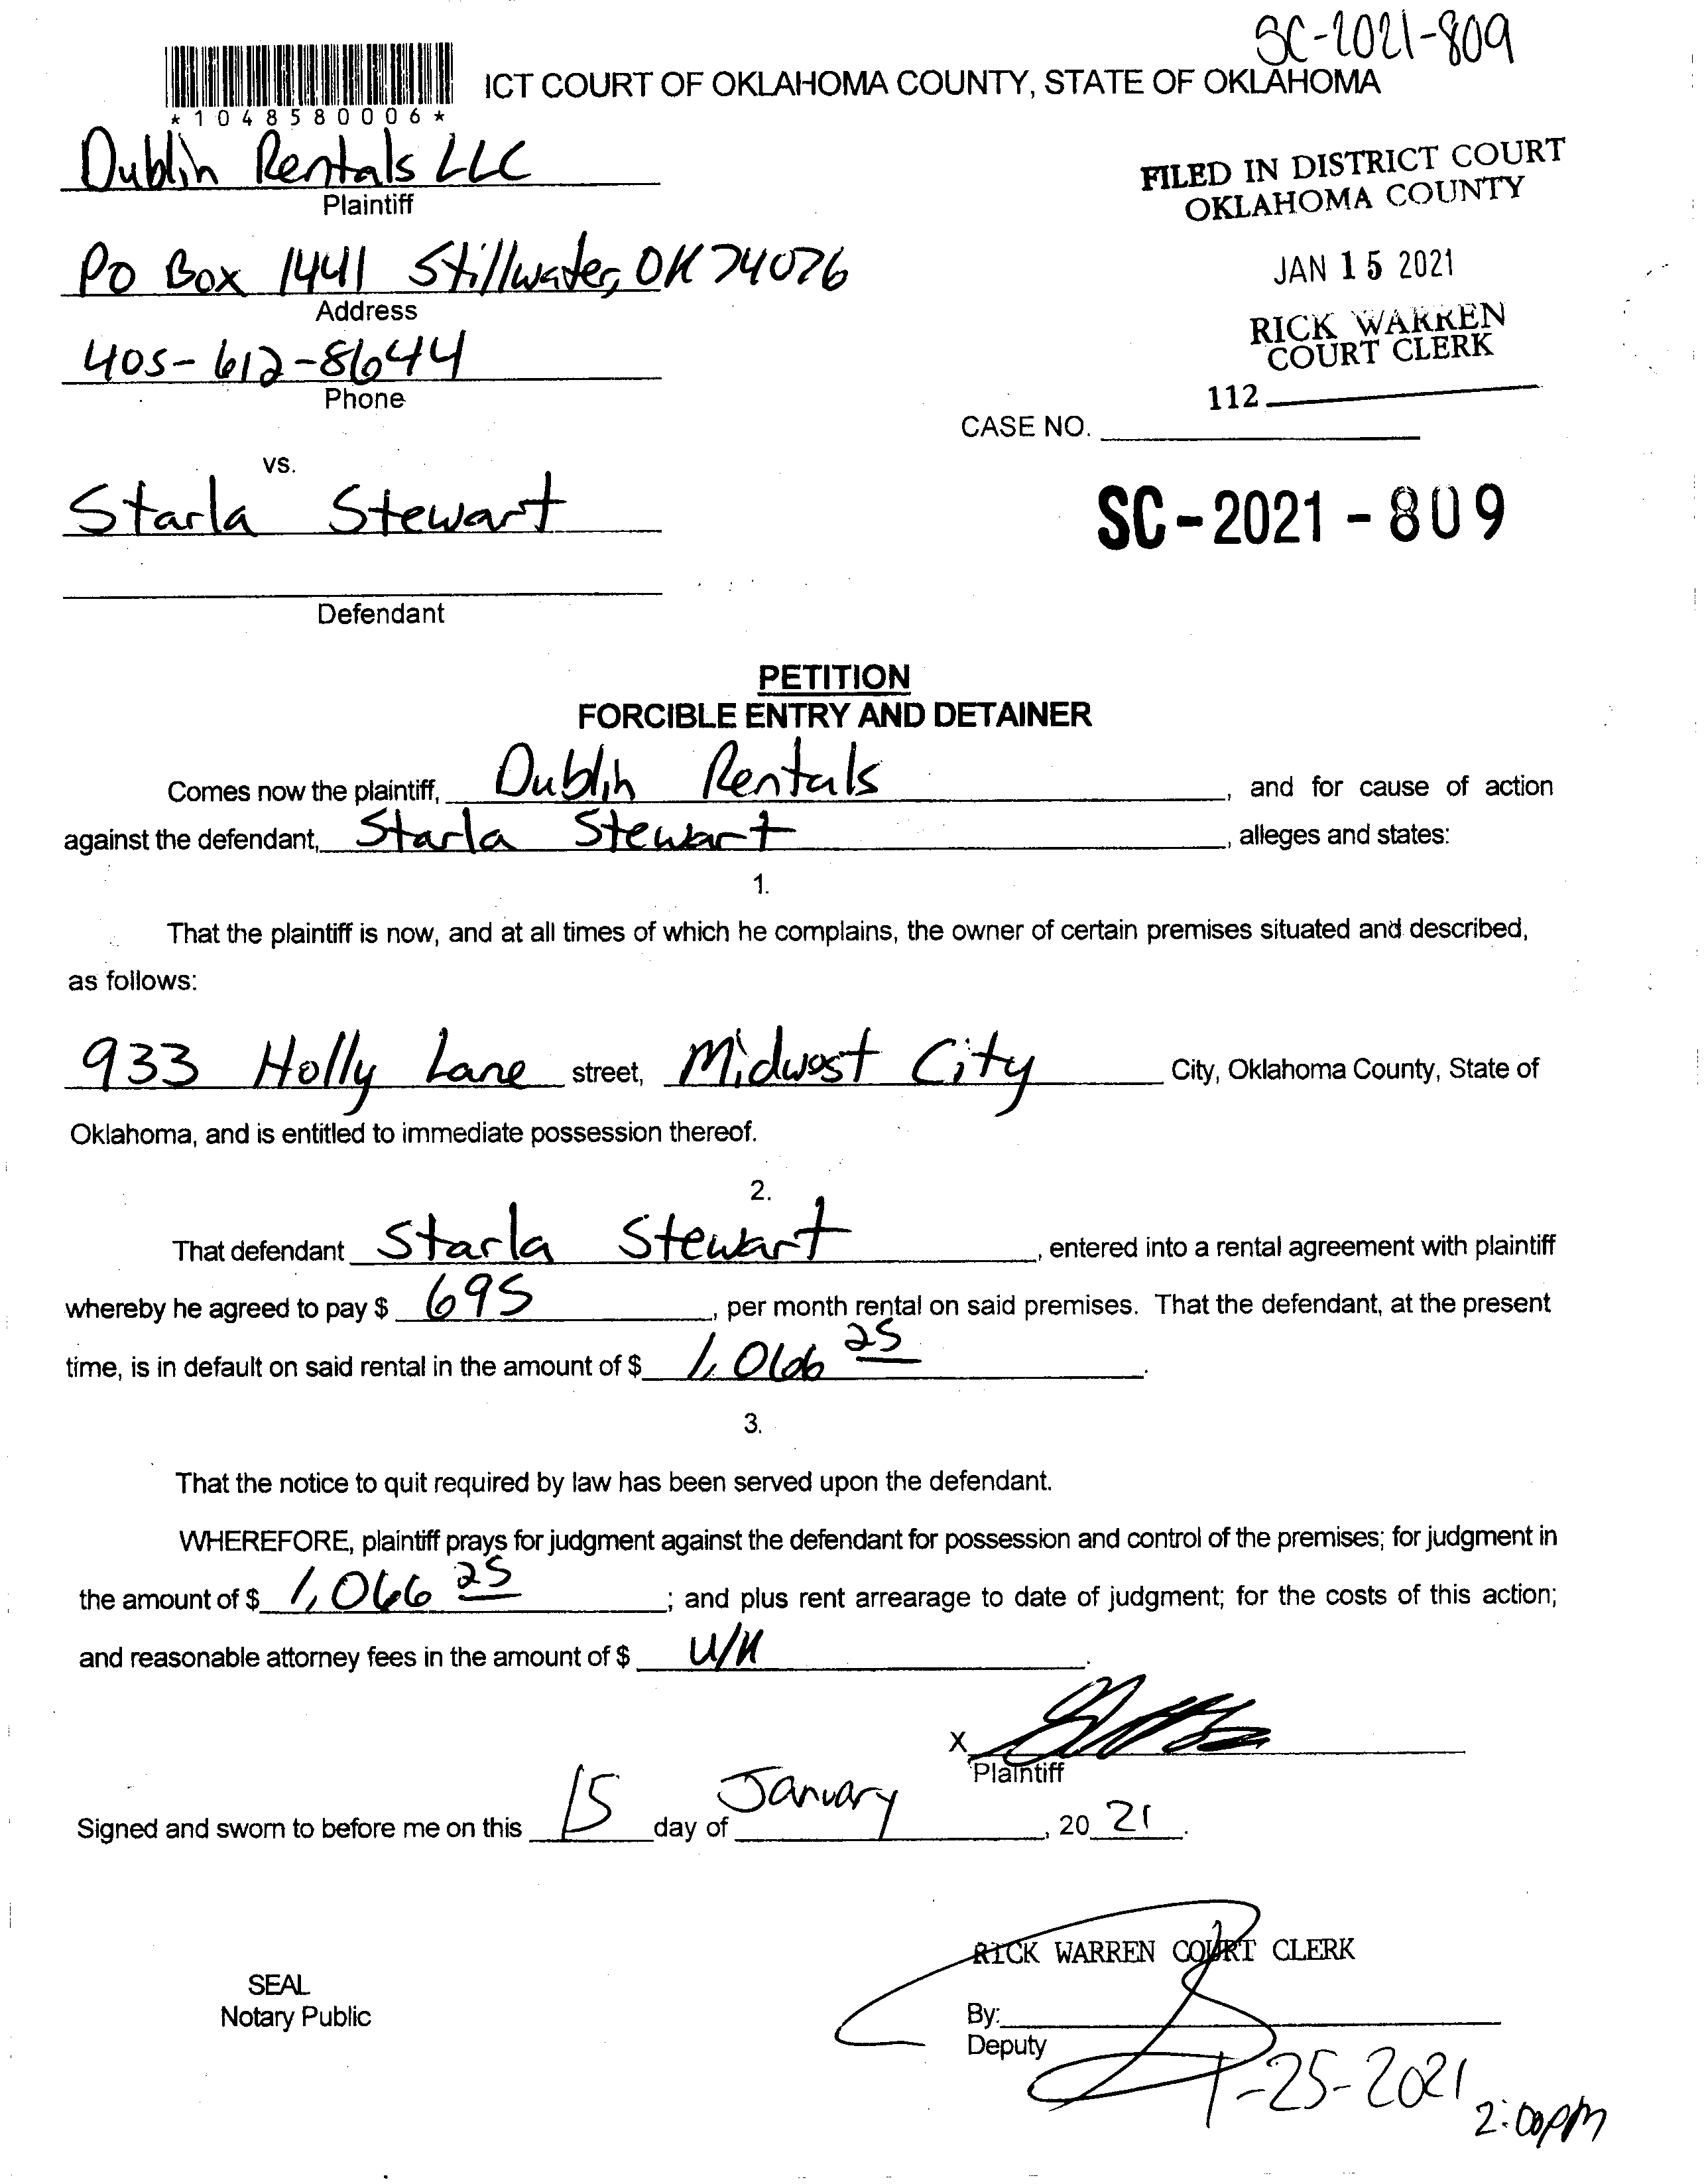 SC-2021-809
ICT COURT OF OKLAHOMA COUNTY, STATE OF OKLAHOMA
*1048580006*
Dublin Rentals LLC
Plaintiff
FILED IN DISTRICT COURT
OKLAHOMA COUNTY
PO Box 1441 Stillwater, OK 74076
Address
JAN 15 2021
RICK WARREN
COURT CLERK
405-612-8644
Phone
112
CASE NO.
vs.
Starla Stewart
SC-2021-809
Defendant
PETITION
FORCIBLE ENTRY AND DETAINER
Comes now the plaintiff, Dublin Rentals, and for cause of action
against the defendant, Starla Stewart, alleges and states:
1.
That the plaintiff is now, and at all times of which he complains, the owner of certain premises situated and described,
as follows:
933 Holly Lane street, Midwest City City, Oklahoma County, State of
Oklahoma, and is entitled to immediate possession thereof.
2.
That defendant Starla Stewart, entered into a rental agreement with plaintiff
whereby he agreed to pay $ 695, per month rental on said premises. That the defendant, at the present
time, is in default on said rental in the amount of $ 1,066 25.
3.
That the notice to quit required by law has been served upon the defendant.
WHEREFORE, plaintiff prays for judgment against the defendant for possession and control of the premises; for judgment in
the amount of $ 1,066 25; and plus rent arrearage to date of judgment; for the costs of this action;
and reasonable attorney fees in the amount of $ U/K.
X
Plaintiff
Signed and sworn to before me on this 15 day of January, 20 21.
RICK WARREN COURT CLERK
SEAL
Notary Public
By:
Deputy
1-25-2021
2:00pm